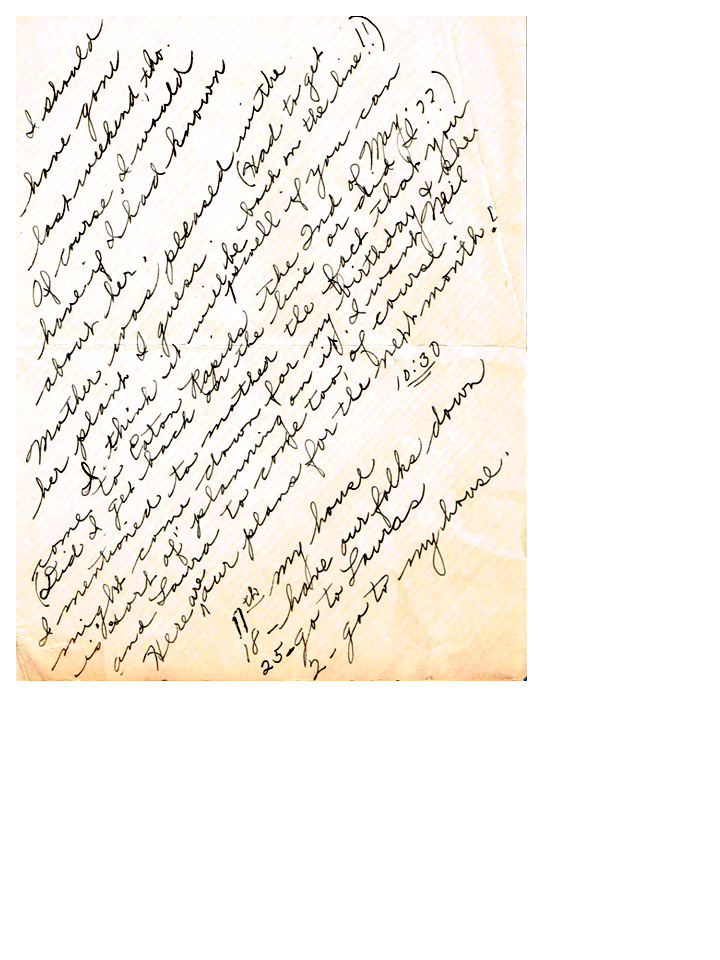 I should
have gone
last weekend, tho.
Of course, I would
have if I had known
about her.
Mother was pleased withe
her plant I guess. (Had to get
I think it will be back on the line!!)
swell if you can
come to Eaton Rapids the 2nd of May.
(Did I get back on the line or did I??)
I mentioned to mother the fact that you
might come down for my birthday & she
is "sort of" planning on it. I want Neil
and Laura to come too, of course.
Here are our plans for the next month!
10:30
11th my house
18 - have our folks down
25 - go to Lauras
2 - go to my house.